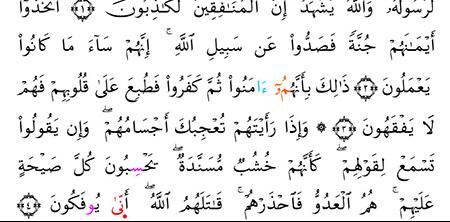 لَرَسُولُهُۥ وَاللَّهُ يَشْهَدُ إِنَّ الْمُنَٰفِقِينَ لَكَٰذِبُونَ ۝١ اَتَّخَذُوٓاْ
أَيْمَٰنَهُمْ جُنَّةً فَصَدُّواْ عَن سَبِيلِ اللَّهِۖ إِنَّهُمْ سَآءَ مَا كَانُواْ
يَعْمَلُونَ ۝٢ ذَٰلِكَ بِأَنَّهُمُۥٓ ءَامَنُواْ ثُمَّ كَفَرُواْ فَطُبِعَ عَلَىٰ قُلُوبِهِمْ فَهُمْ
لَا يَفْقَهُونَ ۝٣ ۞ وَإِذَا رَأَيْتَهُمْ تُعْجِبُكَ أَجْسَامُهُمْۖ وَإِن يَقُولُواْ
تَسْمَعْ لِقَوْلِهِمْۖ كَأَنَّهُمْ خُشُبٌ مُّسَنَّدَةٌۖ يَحْسِبُونَ كُلَّ صَيْحَةٍ
عَلَيْهِمْۚ هُمُ الْعَدُوُّ فَاحْذَرْهُمْۚ قَٰتَلَهُمُ اللَّهُۖ أَنَّىٰ يُوفَكُونَ ۝٤